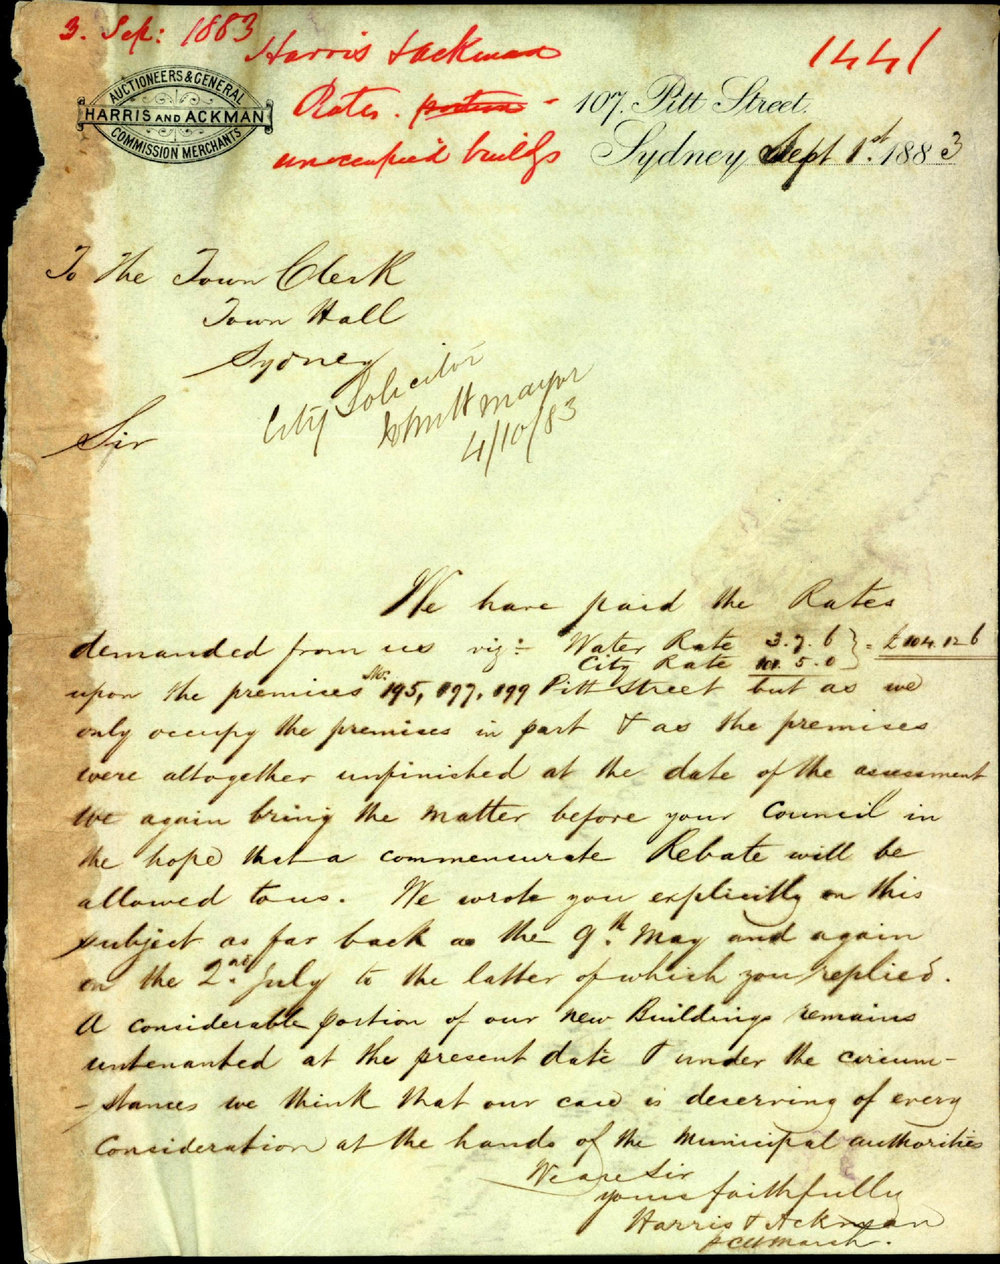 3. Sep: 1883
Harris & Ackman
1441
Rates. portion -
unoccupied buildgs
AUCTIONEERS & GENERAL
HARRIS AND ACKMAN
COMMISSION MERCHANTS
107. Pitt Street.
Sydney Sept 1st. 1883
To The Town Clerk
Town Hall
Sydney
City Solicitor
mayor
4/10/83
Sir
We have paid the Rates
demanded from us viz:- Water Rate 3.7.6 } = £104.12.6
City Rate 101.5.0
upon the premises Nos. 195, 197, 199 Pitt Street but as we
only occupy the premises in part & as the premises
were altogether unfinished at the date of the assessment
we again bring the matter before your Council in
the hope that a commensurate Rebate will be
allowed to us. We wrote you explicitly on this
subject as far back as the 9th. May and again
on the 2nd. July to the latter of which you replied.
A considerable portion of our new Buildings remains
untenanted at the present date & under the circum-
-stances we think that our case is deserving of every
Consideration at the hands of the Municipal authorities
We are Sir
yours faithfully
Harris & Ackman